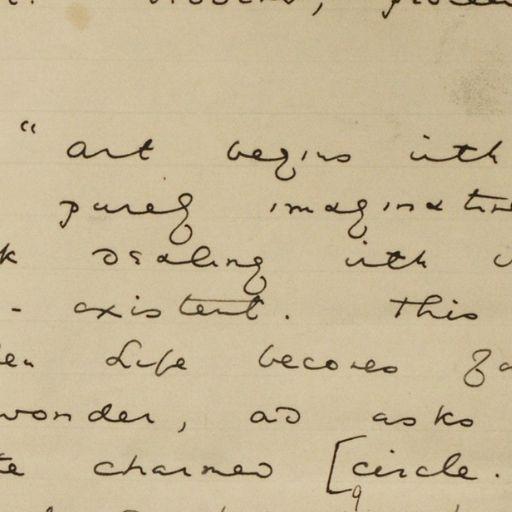 "Art begins with
purely imaginative
k dealing with
- existent. This
Life becomes
wonder, and asks
te charmed [circle.